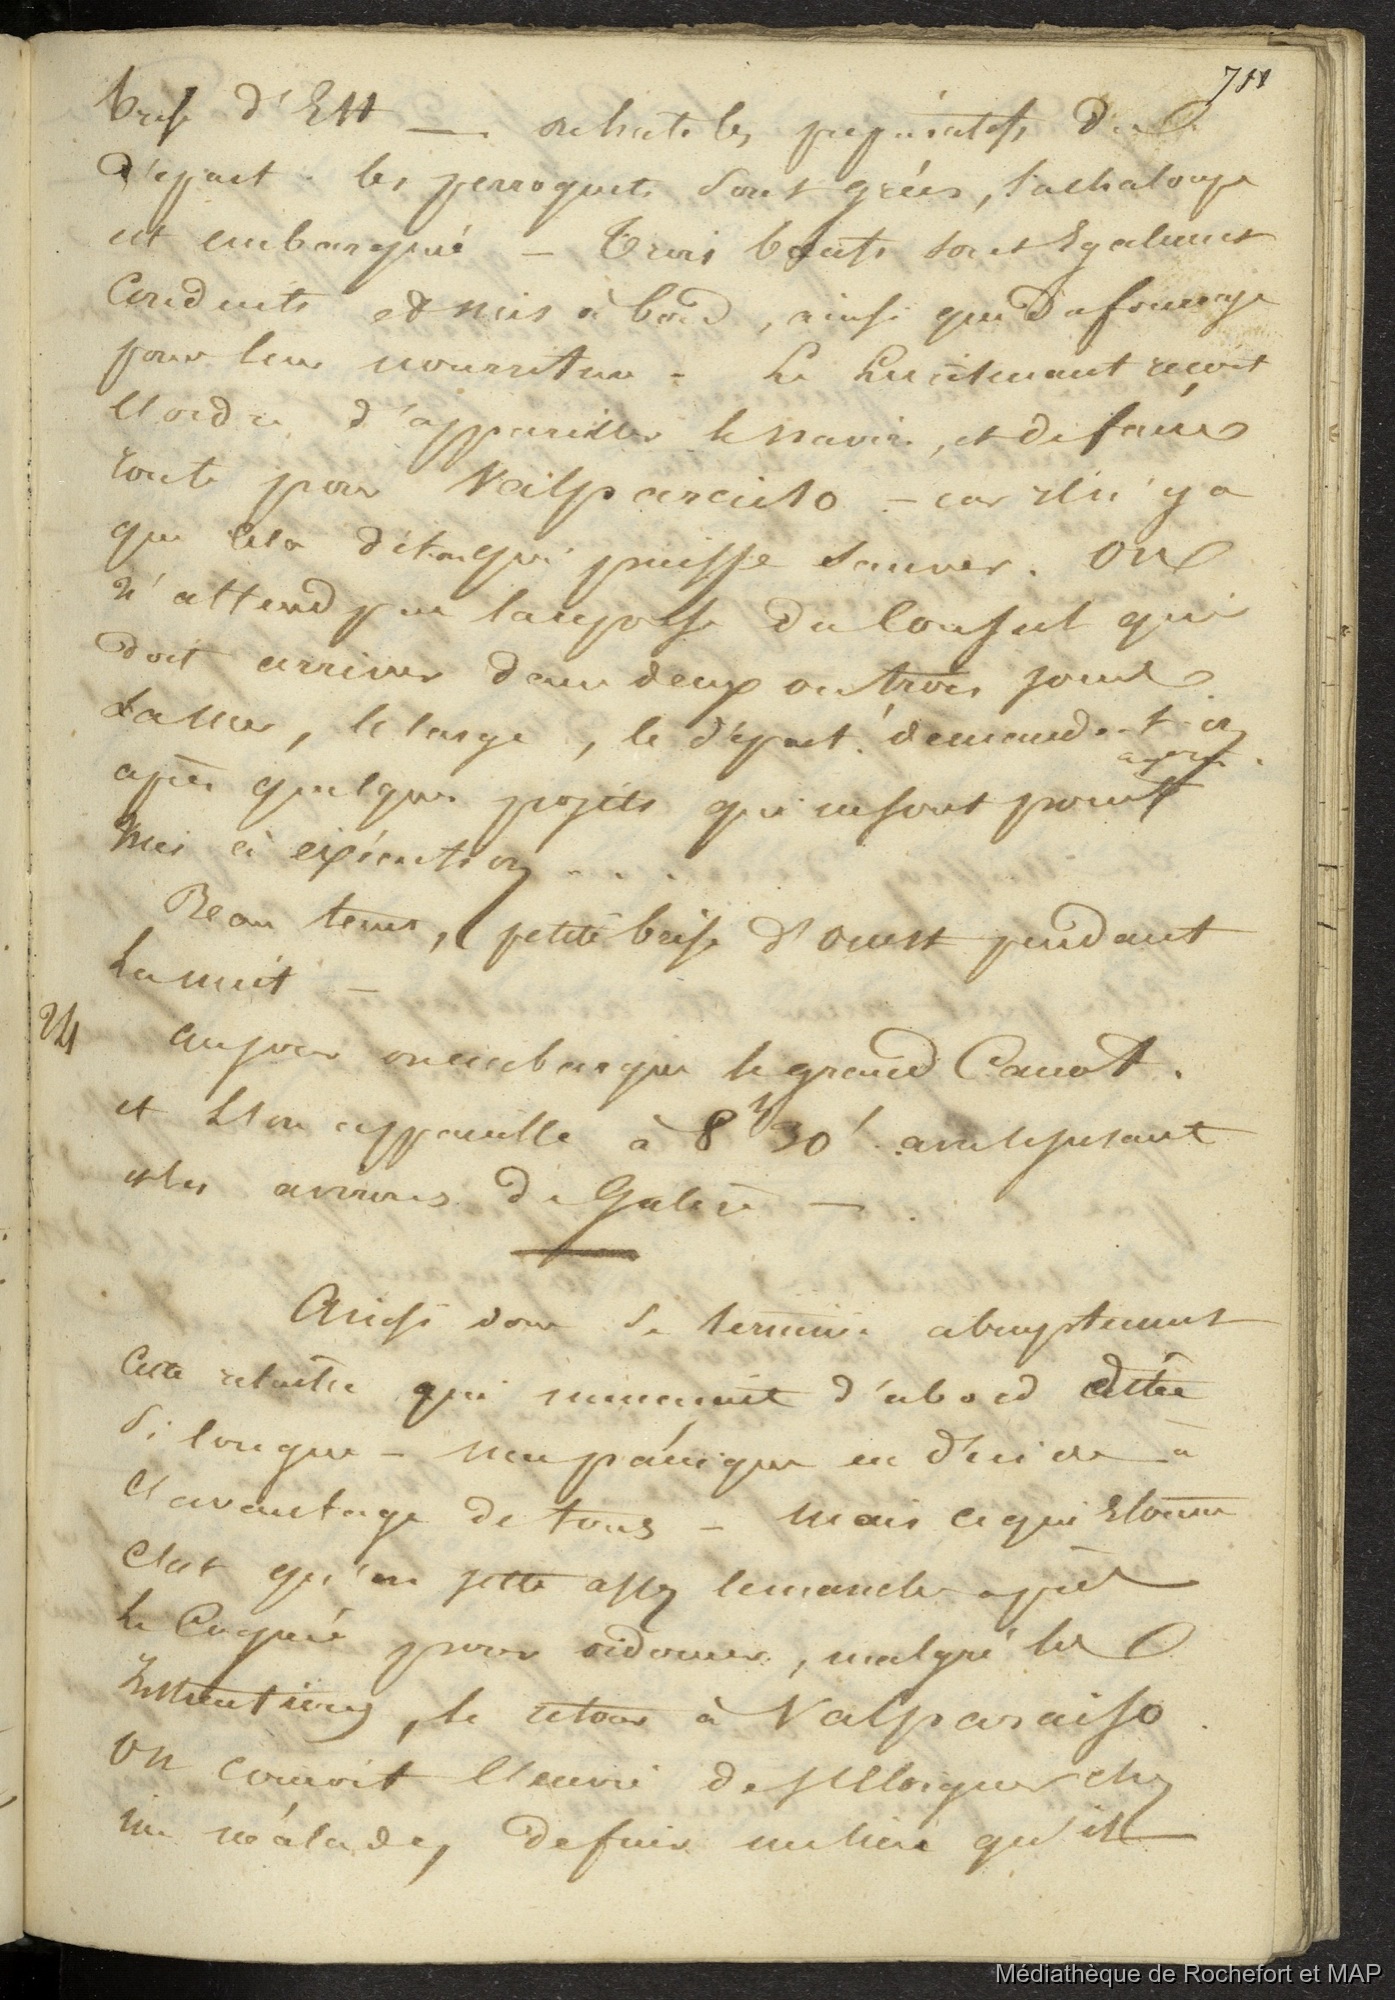 711
brise d'Est — on hate les preparatifs du
départ. les perroquets sont gréés, la chaloupe
est embarquée — Trois boeufs sont Egalement
Conduits et mis à bord, ainsi que du fourrage
pour leur nourriture — Le Lieutenant reçoit
l'ordre d'appareiller le navire, et de faire
route pour Valparaiso — car il n'y a
que cela dit-on qui puisse sauver. On
n'attend pas la reponse du Consul qui
doit arriver dans deux ou trois jours
La mer, le large, le départ! demande-t-on
après quelques projets qui ne sont point
mis à exécution . . . .
Beau tems, petite brise d'Ouest pendant
La nuit —
24
au jour on embarque le grand Canot.
et L'on appareille à 8h 30'
et les avirons de Galère —
Ainsi donc se termine abruptement
cette relache qui d'abord
si longue — une panique en décide à
l'avantage de tous — mais ce qui Etonne
C'est qu'on jette assez le manche après
La Cognée pour ordonner, malgré les
Instructions, le retour à Valparaiso.
On conçoit l'envie de s'éloigner chez
un malade, de fuir un lieu qu'il
Médiathèque de Rochefort et MAP